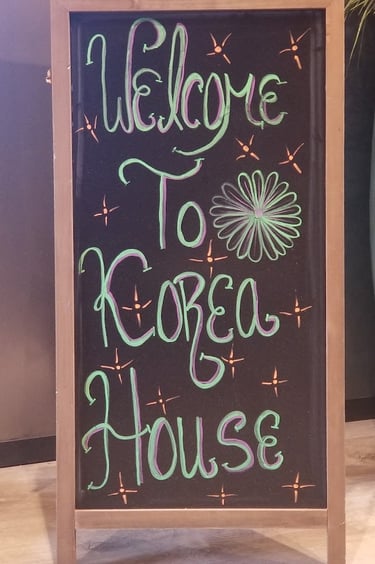 Welcome
To
Korea
House